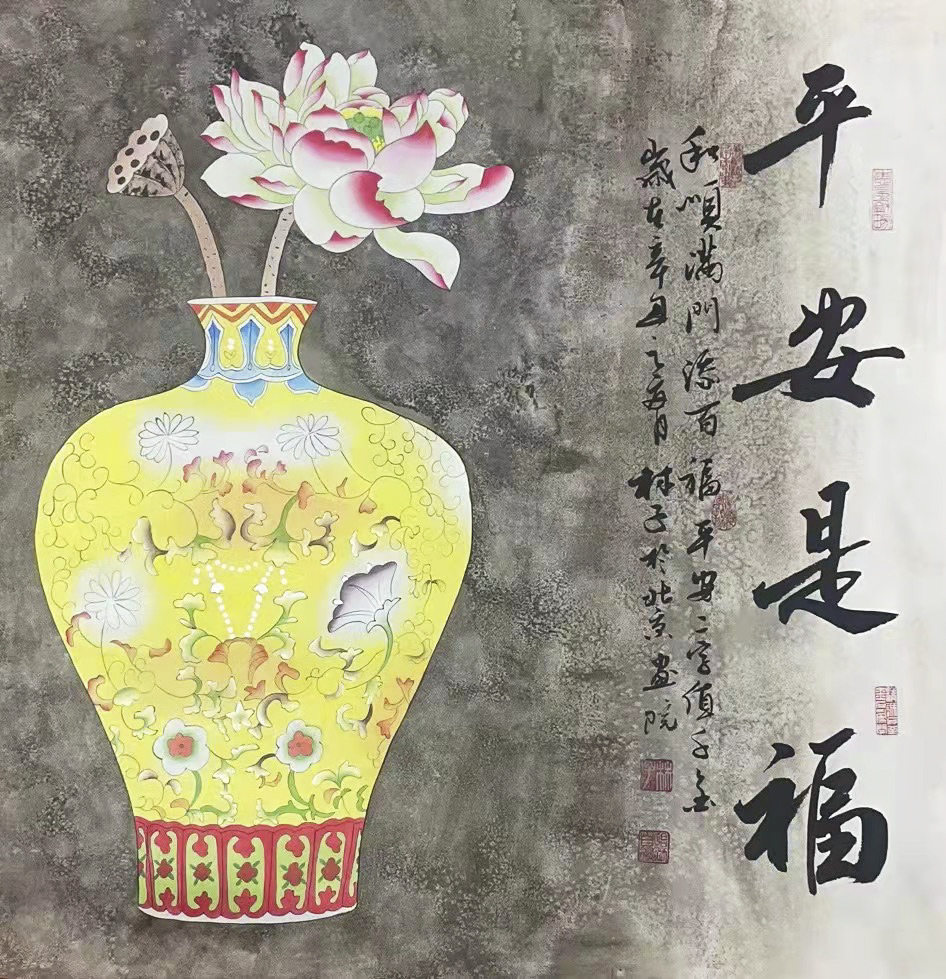 平安是福
和順满門添百福平安二字值千金
歲在辛丑之春月林子於北京画院